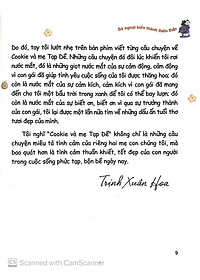 Bà ngoại biến thành thiên thần
Do đó, tay tôi lướt nhẹ trên bàn phím viết từng câu chuyện về
Cookie và mẹ Tạp Dề. Những câu chuyện đó đôi lúc khiến tôi rơi
nước mắt, đó là những giọt nước mắt của sự cảm động, cảm động
vì con gái đã giúp tình yêu cuộc sống của tôi được thăng hoa; đó
còn là nước mắt của sự cảm kích, cảm kích vì con gái đã mang
đến cho tôi một bầu trời trong xanh để tôi có thể bay lượn; đó
còn là nước mắt của sự biết ơn, biết ơn vì qua sự trưởng thành
của con gái, tôi lại được một lần nữa ôn lại những dấu ấn tuổi thơ
tươi đẹp của mình.
Tôi nghĩ "Cookie và mẹ Tạp Dề" không chỉ là những câu
chuyện miêu tả tình cảm của riêng hai mẹ con chúng tôi, mà
bao quát hơn là tình cảm thuần khiết, tốt đẹp của con người
trong cuộc sống phức tạp, bộn bề ngày nay.
Trịnh Xuân Hoa
9
CS Scanned with CamScanner